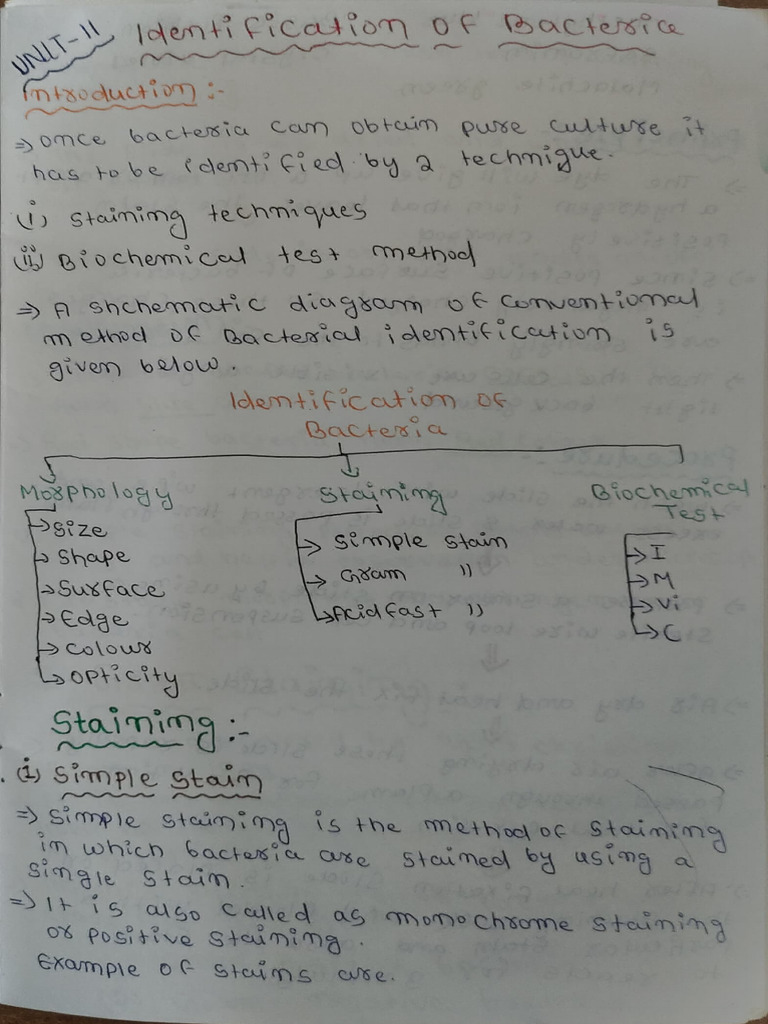 UNIT-II
Identification OF Bacteria
Introduction :-
⇒ once bacteria can obtain pure culture it
has to be identified by 2 technique.
(i) Staining techniques
(ii) Biochemical test method
⇒ A shchematic diagram of conventional
method of Bacterial identification is
given below.
Identification OF
Bacteria
Morphology
→ Size
→ Shape
→ Surface
→ Edge
→ Colour
→ Opticity
Staining
→ Simple stain
→ Gram "
→ Acidfast "
Biochemical
Test
→ I
→ M
→ Vi
→ C
Staining :-
(i) Simple Stain
⇒ Simple staining is the method of staining
in which bacteria are stained by using a
single stain.
⇒ It is also called as monochrome staining
or positive staining.
Example of stains are.